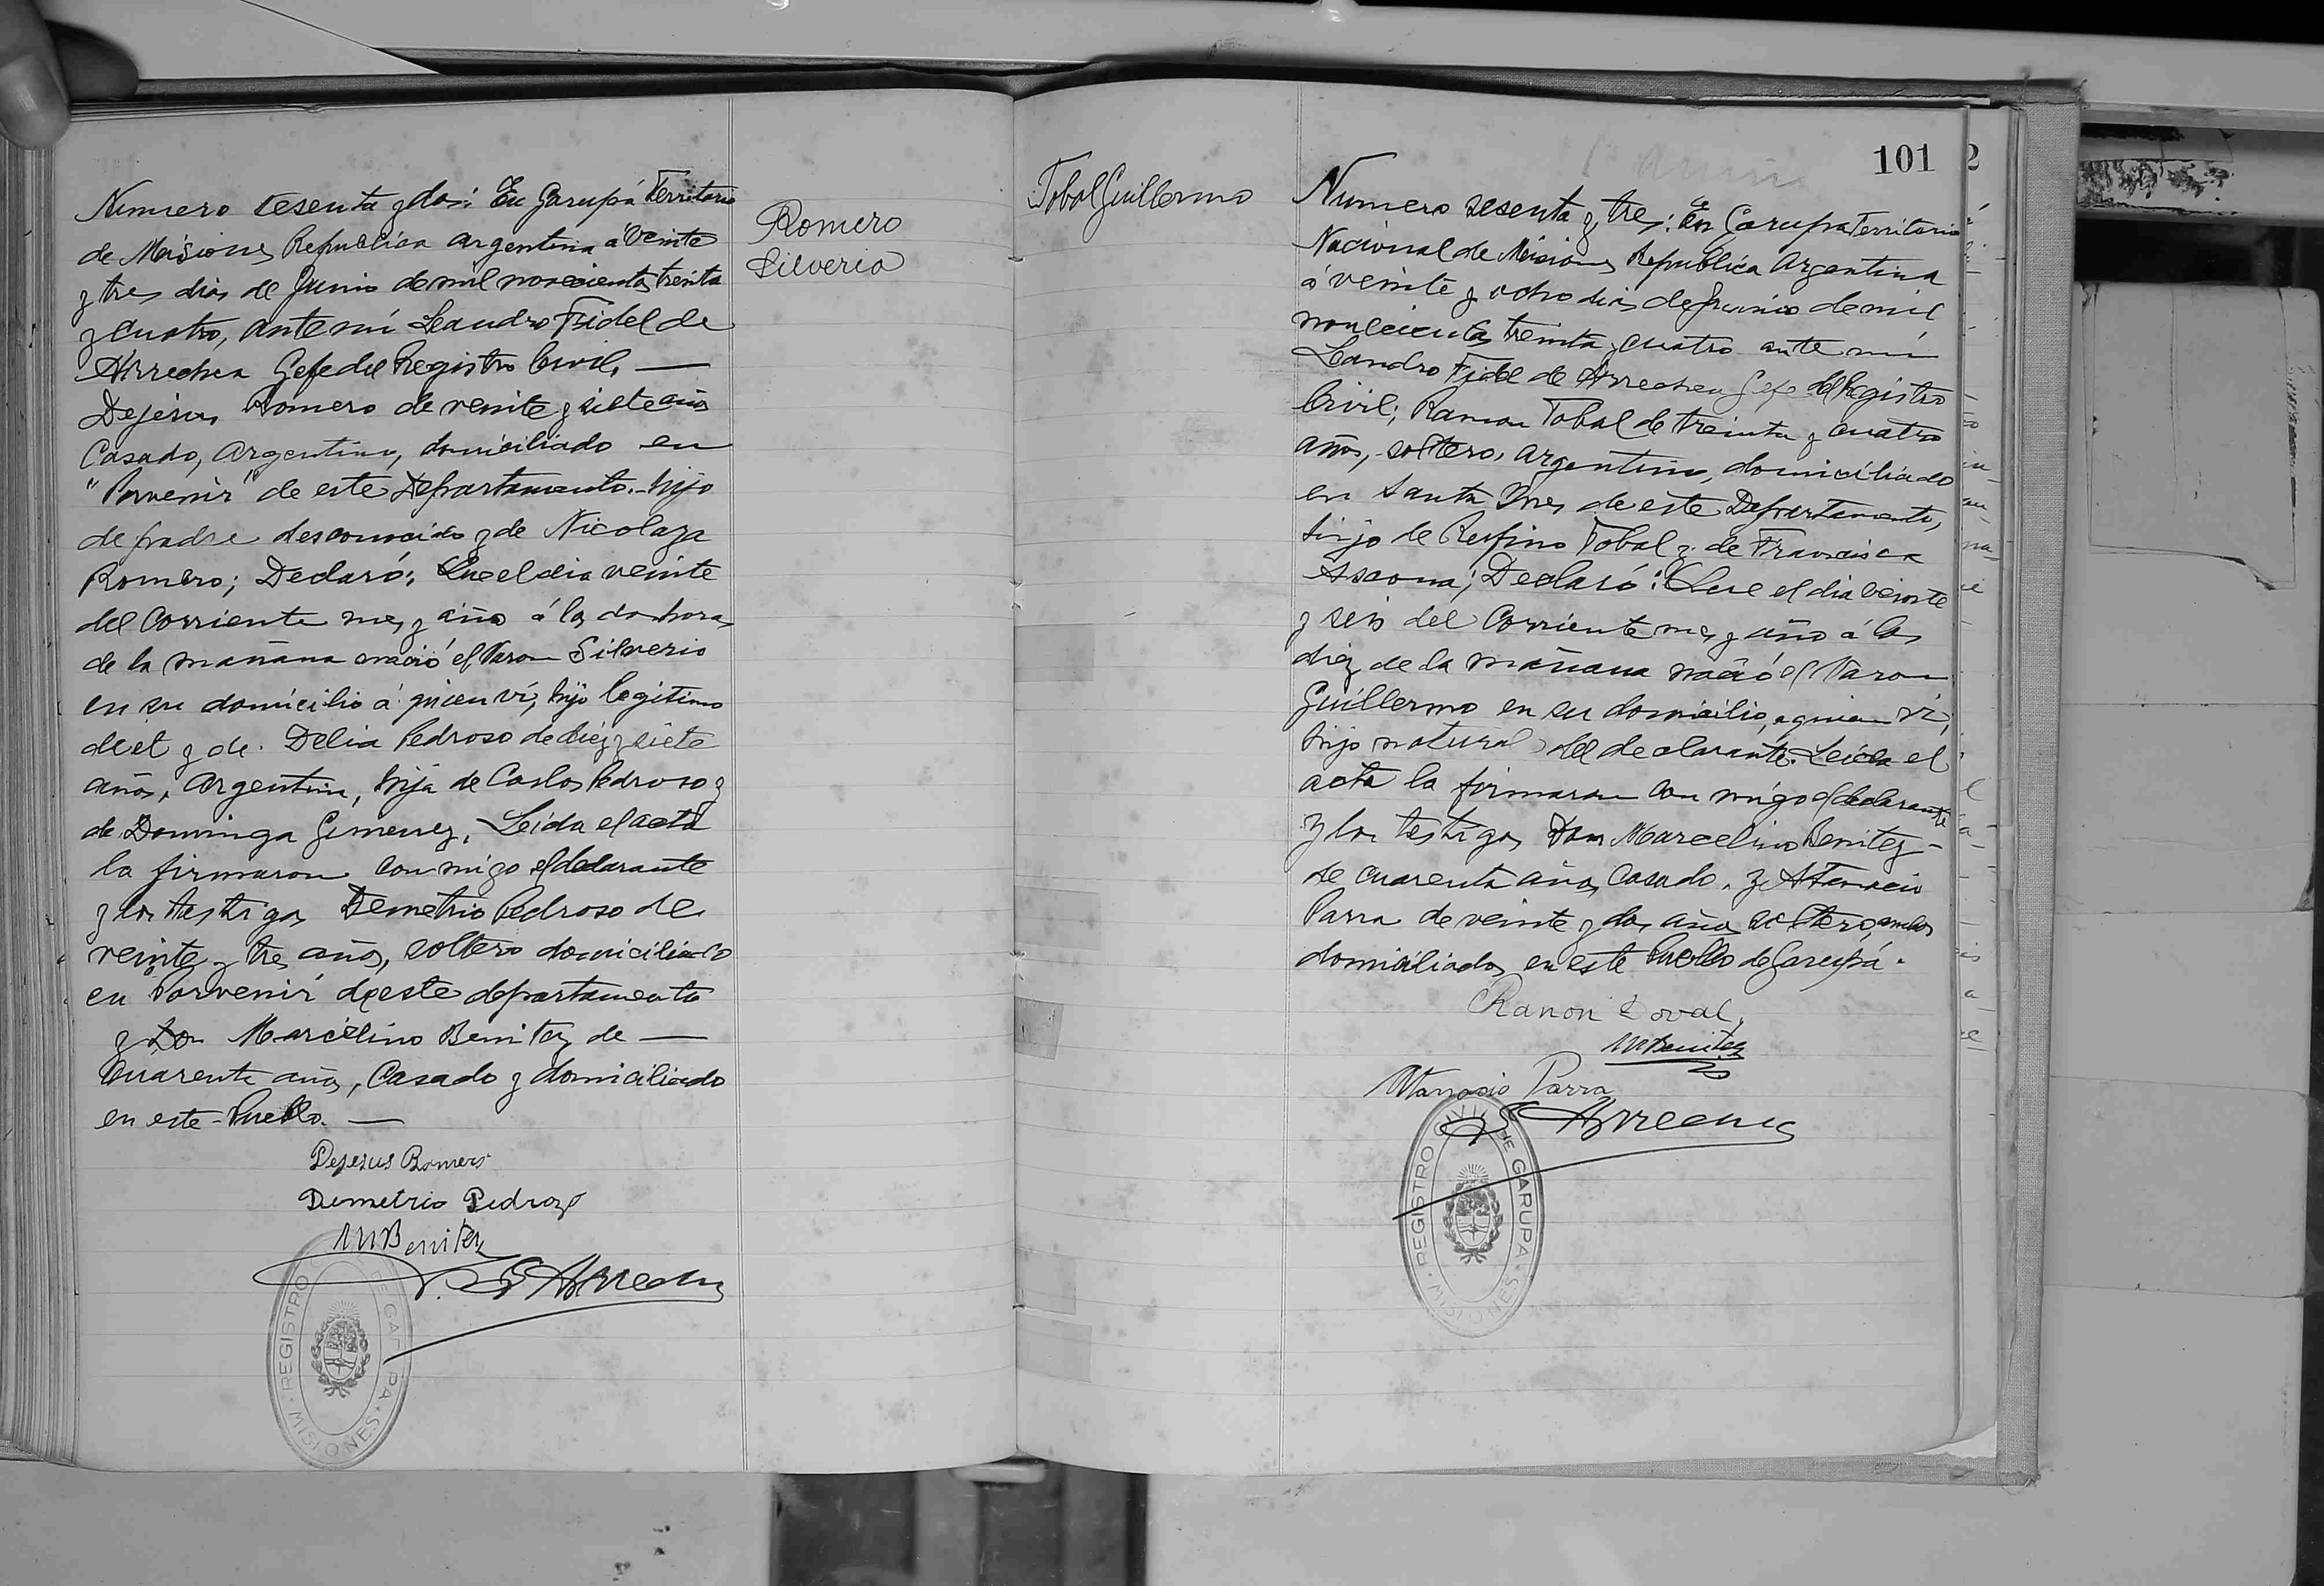 Numero sesenta y dos: En Garupá Territorio
de Misiones Republica Argentina á veinte
y tres dias de Junio de mil novecientos treinta
y cuatro, ante mí Leandro Fidel de
Arrechea Gefe del Registro Civil, —
Dejesus Romero de veinte y siete años
Casado, Argentino, domiciliado en
"Porvenir" de este Departamento. hijo
de padre desconocido y de Nicolaza
Romero; Declaró: Que el dia veinte
del corriente mes y año á las dos horas
de la mañana nació el Varon Silverio
en su domicilio á quien ví, hijo legitimo
de el y de. Delia Pedroso de diez y siete
años, Argentina, hija de Carlos Pedroso y
de Dominga Gimenez, Leida el acta
la firmaron con migo el declarante
y los testigos Demetrio Pedroso de
veinte y tres años, soltero domiciliado
en Porvenir de este departamento
y Don Marcelino Benitez de —
Cuarenta años, Casado y domiciliado
en este Pueblo. —
Dejesus Romero
Demetrio Pedrozo
M Benitez
Arrechea
REGISTRO DE GARUPA
MISIONES
Romero
Silverio
101
2
Tobal Guillermo
Numero sesenta y tres: En Garupa Territorio
Nacional de Misiones Republica Argentina
á veinte y ocho dias de Junio de mil
novecientos treinta y cuatro ante mí
Leandro Fidel de Arrechea Gefe del Registro
Civil; Ramon Tobal de treinta y cuatro
años, soltero, Argentino, domiciliado
en Santa Ines de este Departamento,
hijo de Rufino Tobal y de Francisca
Ascona; Declaró: Que el dia veinte
y seis del Corriente mes y año á las
diez de la mañana nació el Varon
Guillermo en su domicilio, a quien ví,
hijo natural del declarante. Leida el
acta la firmaron con migo el declarante
y los testigos Don Marcelino Benitez
de cuarenta años, Casado. y Atanacio
Parra de veinte y dos años soltero, ambos
domiciliados en este Pueblo de Garupá.
Ramon Doval,
M Benitez
Atanacio Parra
Arrechea
REGISTRO CIVIL DE GARUPA
MISIONES